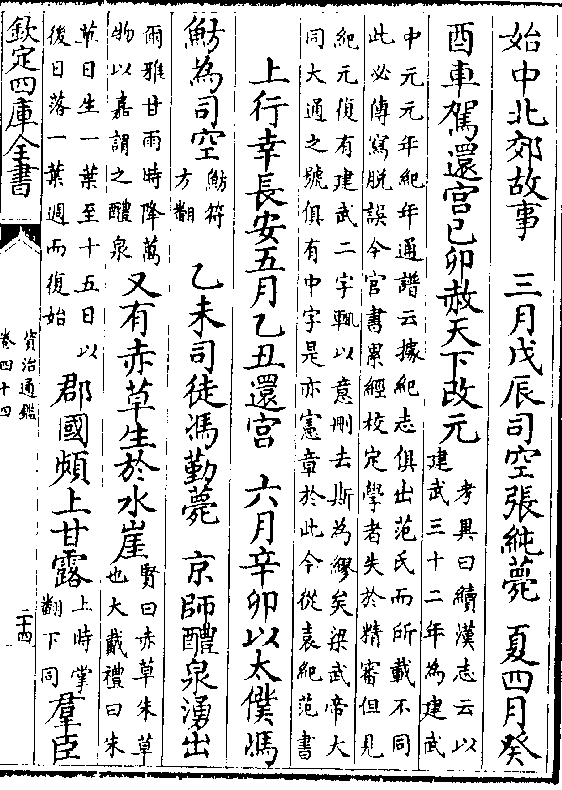 始中北郊故事　三月戊辰司空張純薨　夏四月癸
酉車駕還宫己卯赦天下改元
考異曰續漢志云以
建武三十二年為建武
中元元年紀年通譜云據紀志俱出范氏而所載不同
此必傳寫脱誤今官書累經校定學者失於精審但見
紀元復有建武二字輒以意刪去斯為繆矣梁武帝大
同大通之號俱有中字是亦憲章於此今從袁紀范書
上行幸長安五月乙丑還宫　六月辛卯以太僕馮
魴為司空
魴符
方翻
乙未司徒馮勤薨　京師醴泉湧出
爾雅甘雨時降萬
物以嘉謂之醴泉
又有赤草生於水崖
賢曰赤草朱草
也大戴禮曰朱
草日生一葉至十五日以
後日落一葉週而復始
郡國頻上甘露
上時掌
翻下同
羣臣
欽定四庫全書
資治通鑑
卷四十四
二十四